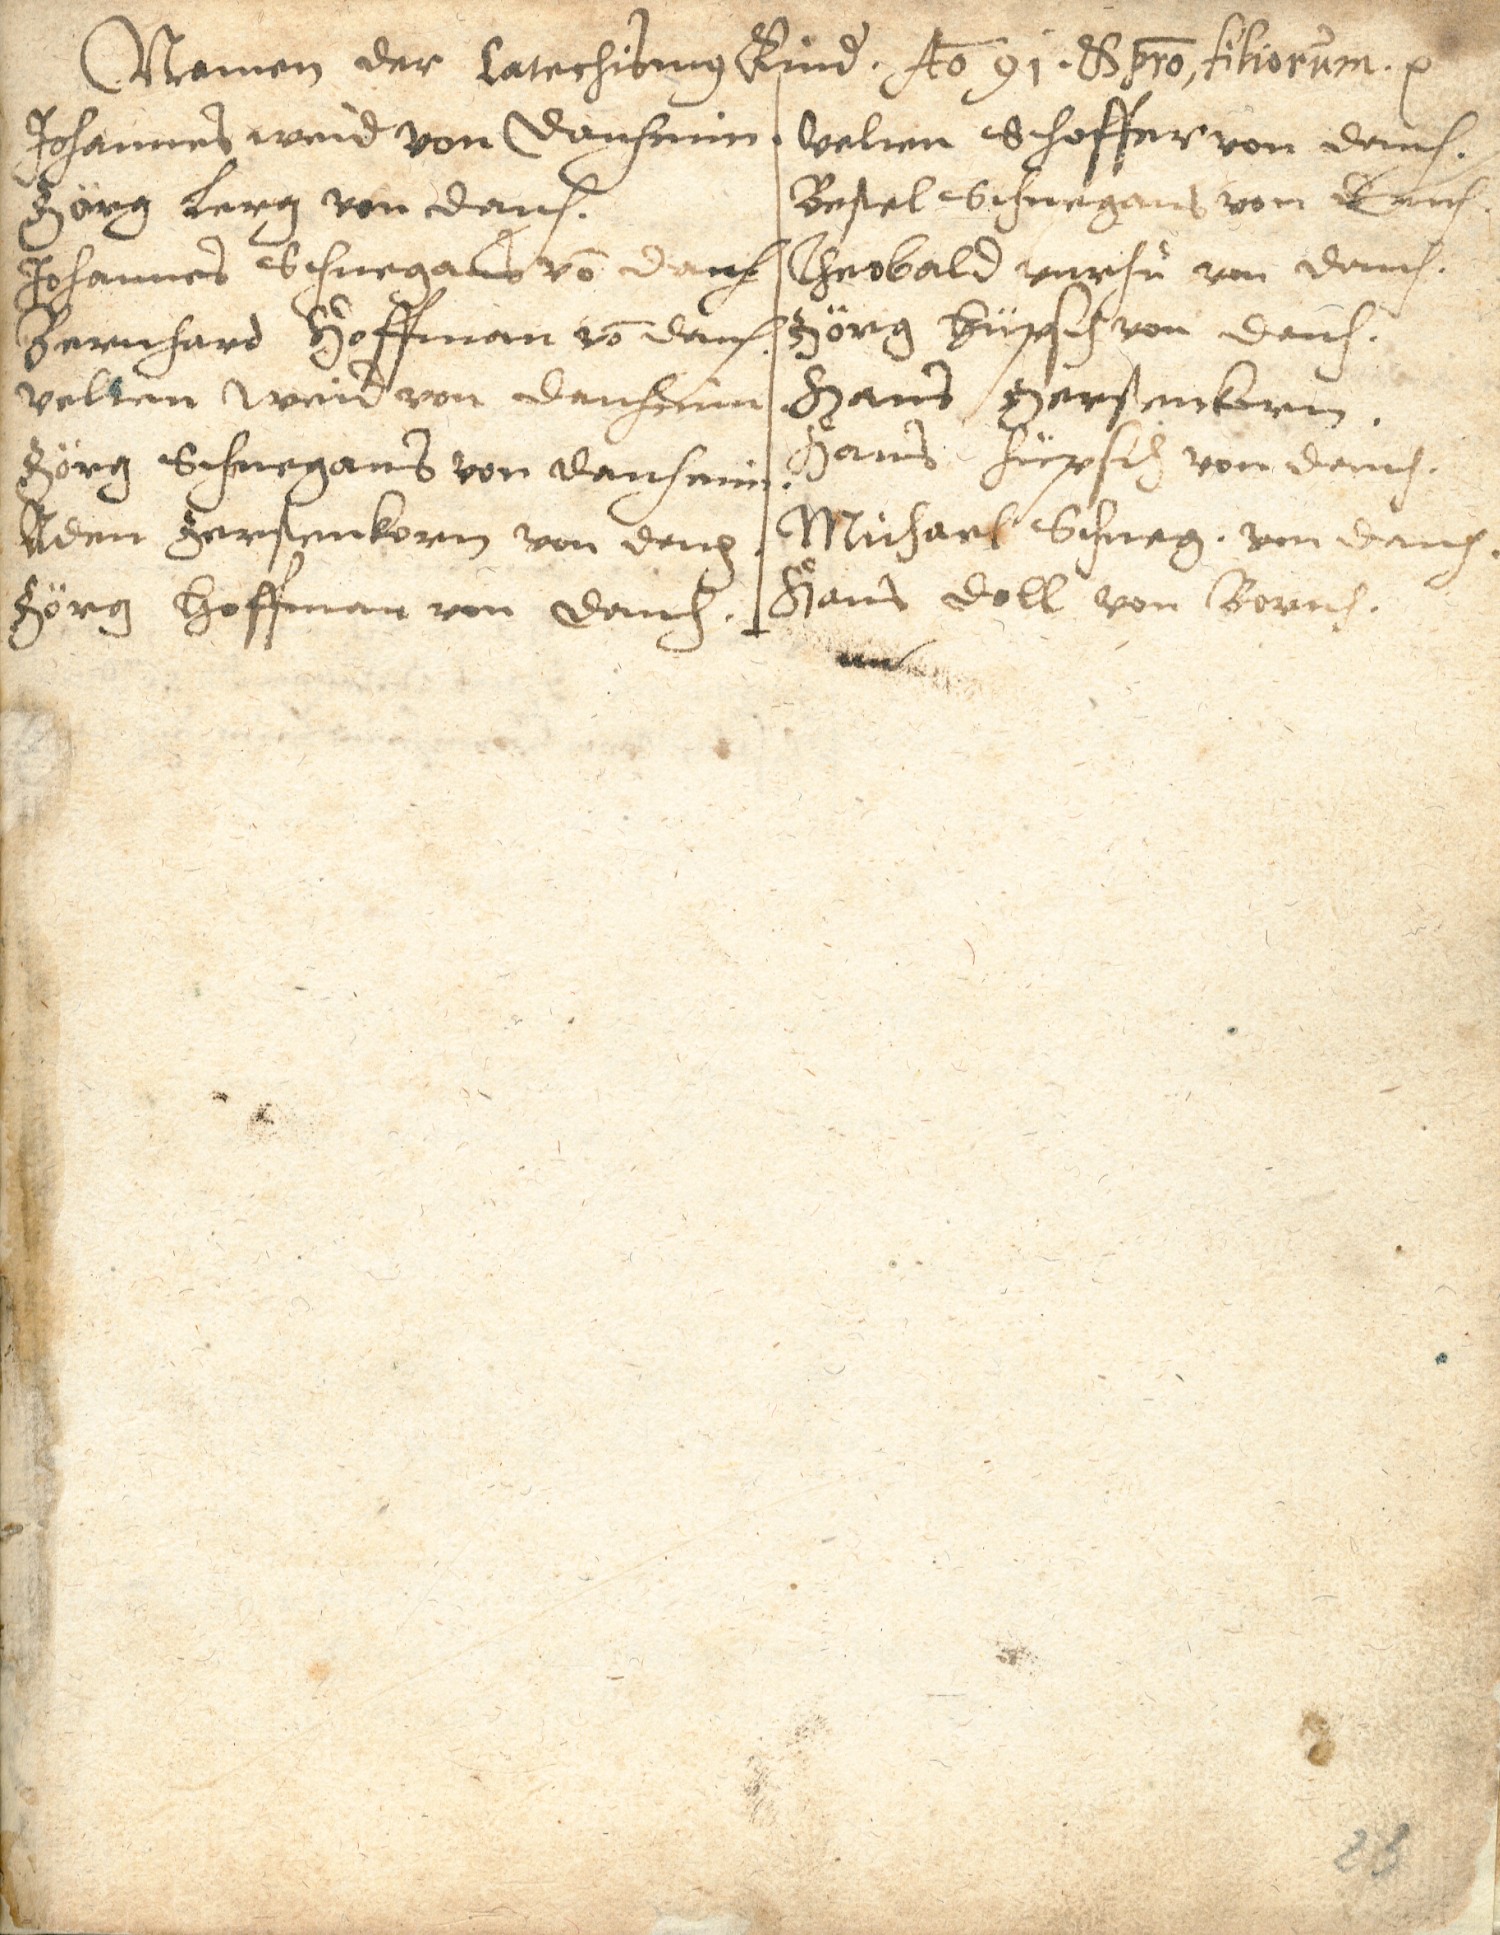 Namen der Catechismus Kind. Aō 91. & prō, filiorum.
Johannes weid von Danheim.
Görg Lerg von danh.
Johannes Schnegans vō danh
Bernhard Hoffman vō danh.
velten weid von danheim
Görg Schnegans von danheim.
Aden Gerstenkorn von denh.
Görg Hoffman von danh.
Velten Schoffer von danh.
Bestel Schnegans von Danh.
Theobald von danh.
Görg Hüpsch von danh.
Hans Gerstenkorn.
Hans hüpsch von danh.
Michael Schneg. von danh.
Hans Doll von Bornh.
23